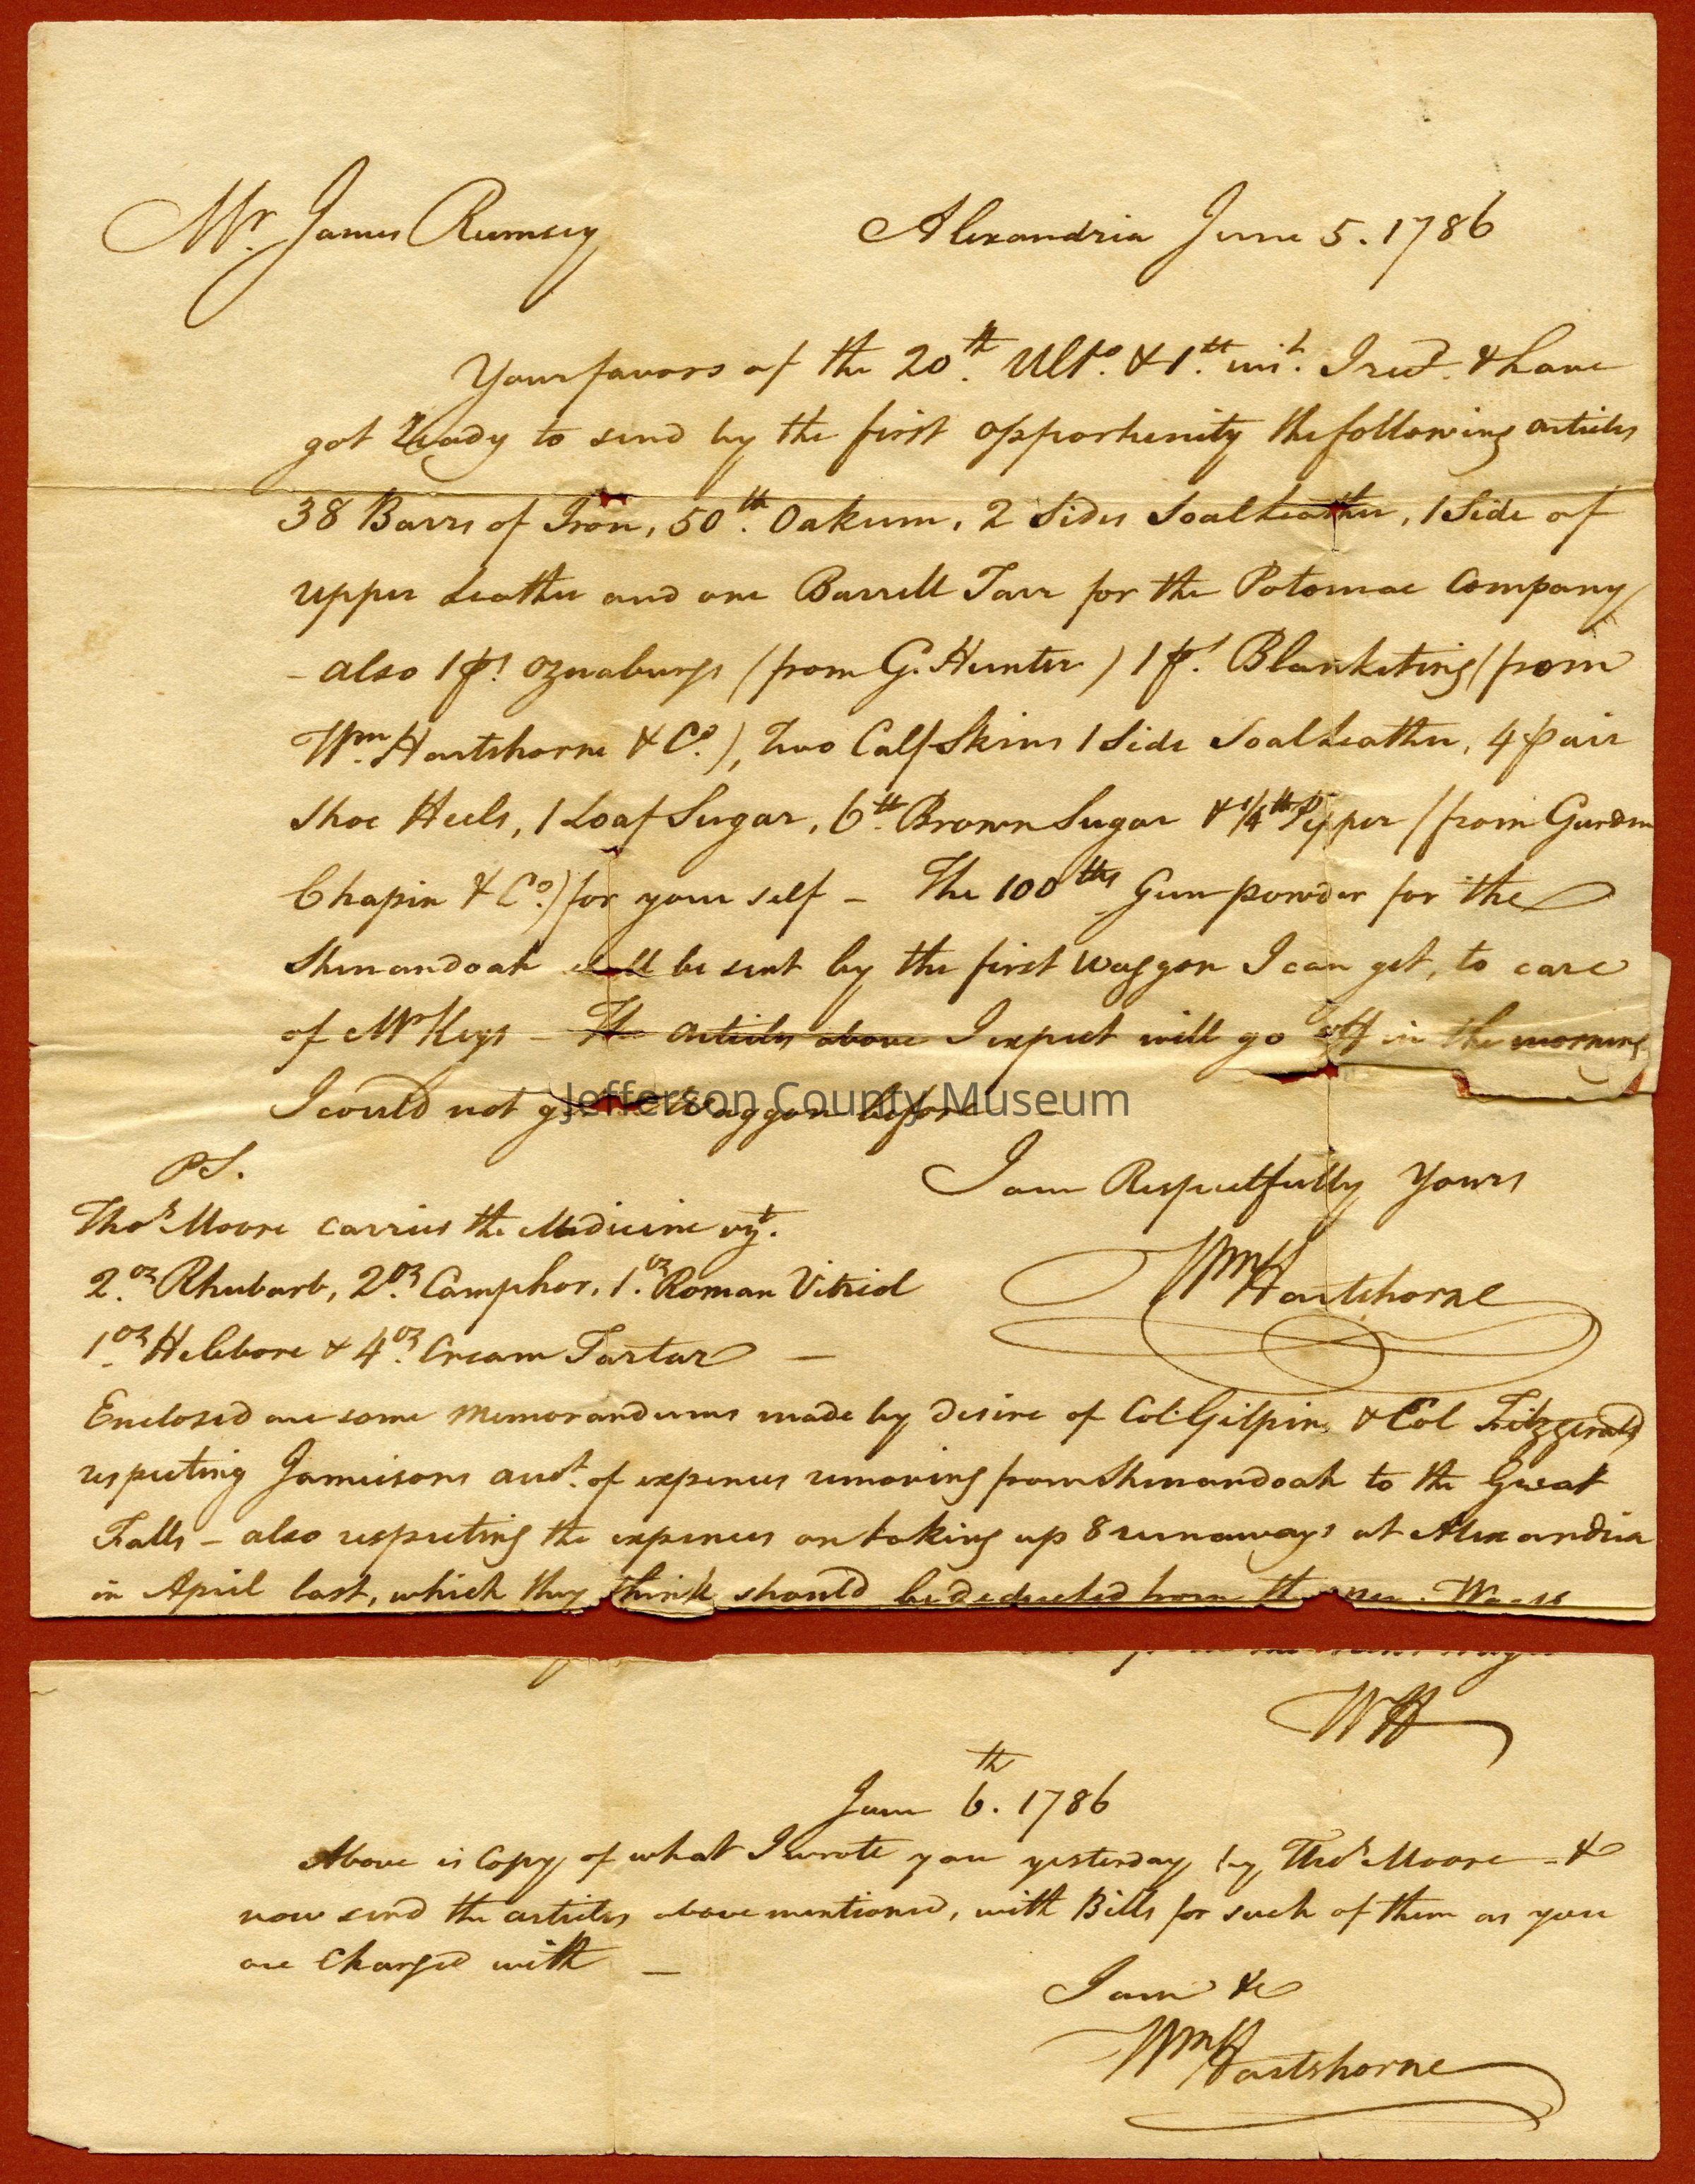 Mr. James Rumsey
Alexandria June 5. 1786
Your favors of the 20th. Ulto. & 1st. inst. I recd. & have
got Ready to send by the first opportunity the following articles
38 Barrs of Iron, 50 lb. Oakum, 2 Sides Soal Leather, 1 Side of
upper Leather and one Barrell Tarr for the Potomac Company
- also 1 ps. oznaburgs (from G. Hunter) 1 ps. Blanketing (from
Wm. Hartshorne & Co.), Two Calf Skins 1 Side Soal Leather, 4 pair
Shoe Heels, 1 Loaf Sugar, 6 lb. Brown Sugar & 1/4 lb Pepper (from Gurdon
Chapin & Co.) for your self - The 100 lbs Gun powder for the
Shenandoah shall be sent by the first Waggon I can get, to care
of Mr Keys - The articles above I expect will go off in the morning
I could not Waggon before
Jefferson County Museum
PS.
I am Respectfully Yours
Thos. Moore carries the Medicine vizt.
2 oz. Rhubarb, 2 oz. Camphor, 1 oz. Roman Vitriol
Wm Hartshorne
1 oz. Helebore & 4 oz. Cream Tartar -
Enclosed are some Memorandums made by desire of Col. Gilpin & Col Fitzgerald
respecting Jamiesons acct. of expences removing from Shenandoah to the Great
Falls - also respecting the expences on taking up 8 runaways at Alexandria
in April last, which they think should be deducted from
WH
June 6th. 1786
Above is Copy of what I wrote you yesterday by Thos. Moore - &
now send the articles above mentioned, with Bills for such of them as you
are Charged with -
I am &c
Wm Hartshorne